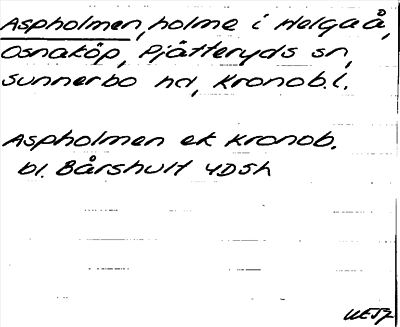 Aspholmen, holme i Helgaå,
Osnaköp, Pjätteryds sn,
Sunnerbo hd, Kronob.l.
Aspholmen ek Kronob.
bl. Bårshult 4D5h